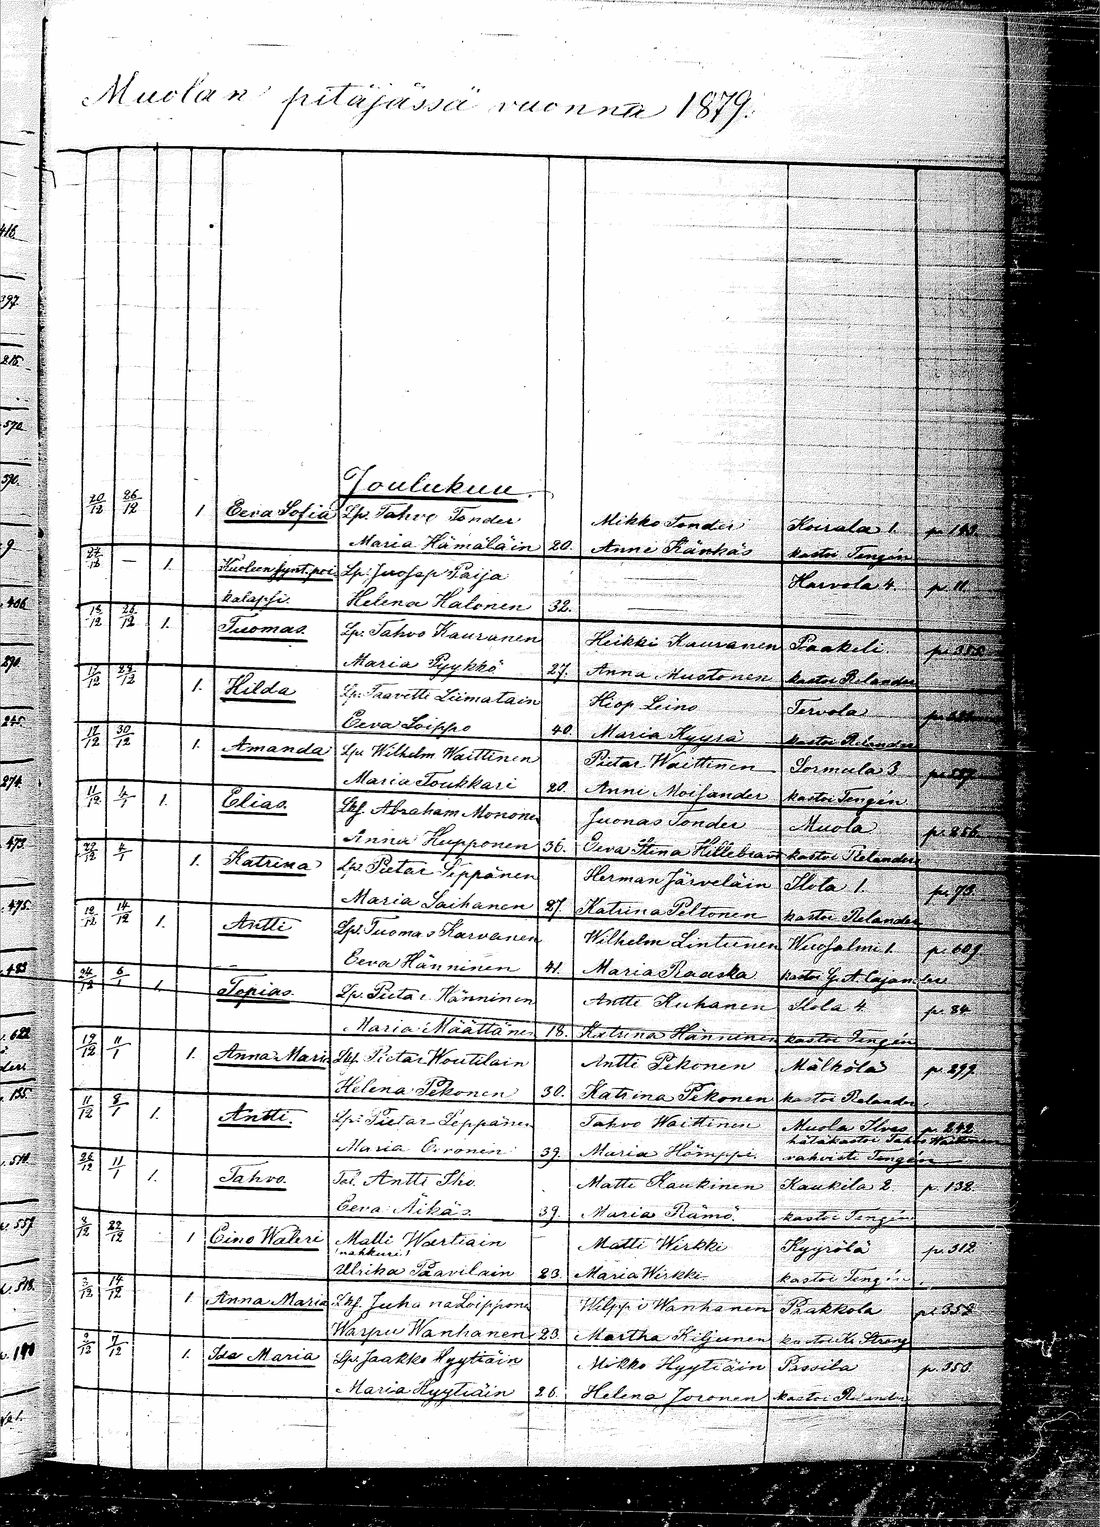 Muolan pitäjässä vuonna 1879.
Joulukuu.
20/12 26/12 1 Eeva Sofia Lp. Tahvo Tonder Mikko Tonder Koirala 1. p. 193.
Maria Hämäläin 20. Anni Känkäs kastoi Tengén
22/12 — 1. Kuoleen synt. poi Lp. Juosep Paija Harvola 4. p. 11.
kalapsi. Helena Halonen 32.
18/12 26/12 1. Tuomas. Lp. Tahvo Kauranen Heikki Kauranen Paakeli.
Maria Pyykkö 27. Anna Mustonen kastoi Relander
17/12 28/12 1. Hilda Lp. Taavetti Liimatain Hiop Leino Tervola
Eeva Loippo 40. Maria Kyyrä kastoi Relander
17/12 30/12 1. Amanda Lp. Wilhelm Waittinen Pietar Waittinen Sormula 3.
Maria Toukkari 20. Anni Moisander kastoi Tengén
11/12 4/1 1. Elias. Lkf. Abraham Mononen Juonas Tonder Muola p. 856.
Anna Hupponen 36. Eeva Stina Hillebrant kastoi Relander
29/12 4/1 1. Katrina Lp. Pietar Seppänen Herman Järveläin Ilola 1. p. 73.
Maria Laihanen 27. Katrina Peltonen kastoi Relander
12/12 14/12 1. Antti Lp. Tuomas Karvanen Wilhelm Lintunen Wuosalmi 1. p. 609.
Eeva Hänninen 41. Maria Raaska kastoi G. A. Cajander
24/12 6/1 1. Topias. Lp. Pietar Hänninen Antti Kuhanen Ilola 4. p. 84.
Maria Määttänen 18. Katrina Hänninen kastoi Tengén
19/12 11/1 1. Anna Maria Lkf. Pietar Woutilain Antti Pekonen Mälkölä p. 299.
Helena Pekonen 30. Katrina Pekonen kastoi Relander
11/12 8/1 1. Antti. Lp. Pietar Leppänen Tahvo Waittinen Muola Ilves p. 242.
hätäkastoi Tahvo Waittinen
Maria Orronen 39. Maria Hömppi. vahvisti Tengén
26/12 11/1 1. Tahvo. Tal. Antti Iho. Matti Kaukinen Kaukila 2. p. 138.
Eeva Äikäs 39. Maria Rämö kastoi Tengén
8/12 22/12 1 Eino Waleri Matti Wærtiain Matti Wirkki Kyyrölä p. 312
(nahkuri)
Ulrika Paavilain 23. Maria Wirkki kastoi Tengén
2/12 14/12 1 Anna Maria Lkf. Juhana Loipponen Wilppi Wanhanen Pakkola p. 358.
Warpu Wanhanen 23. Martha Kiljunen kastoi K. Streng
2/12 7/12 1. Ida Maria Lp. Jaakko Hyytiäin Mikko Hyytiäin Passila p. 353.
Maria Hyytiäin 26. Helena Joronen kastoi Relander